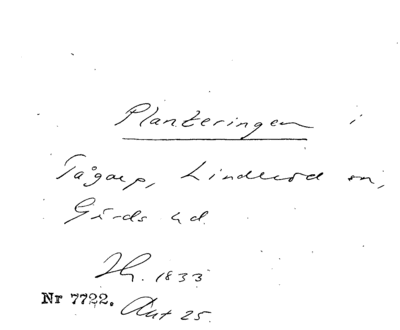 Planteringen i
Tågarp, Linderöd sn,
Gärds hd.
Hr. 1833
Nr 7722. Aut 25.